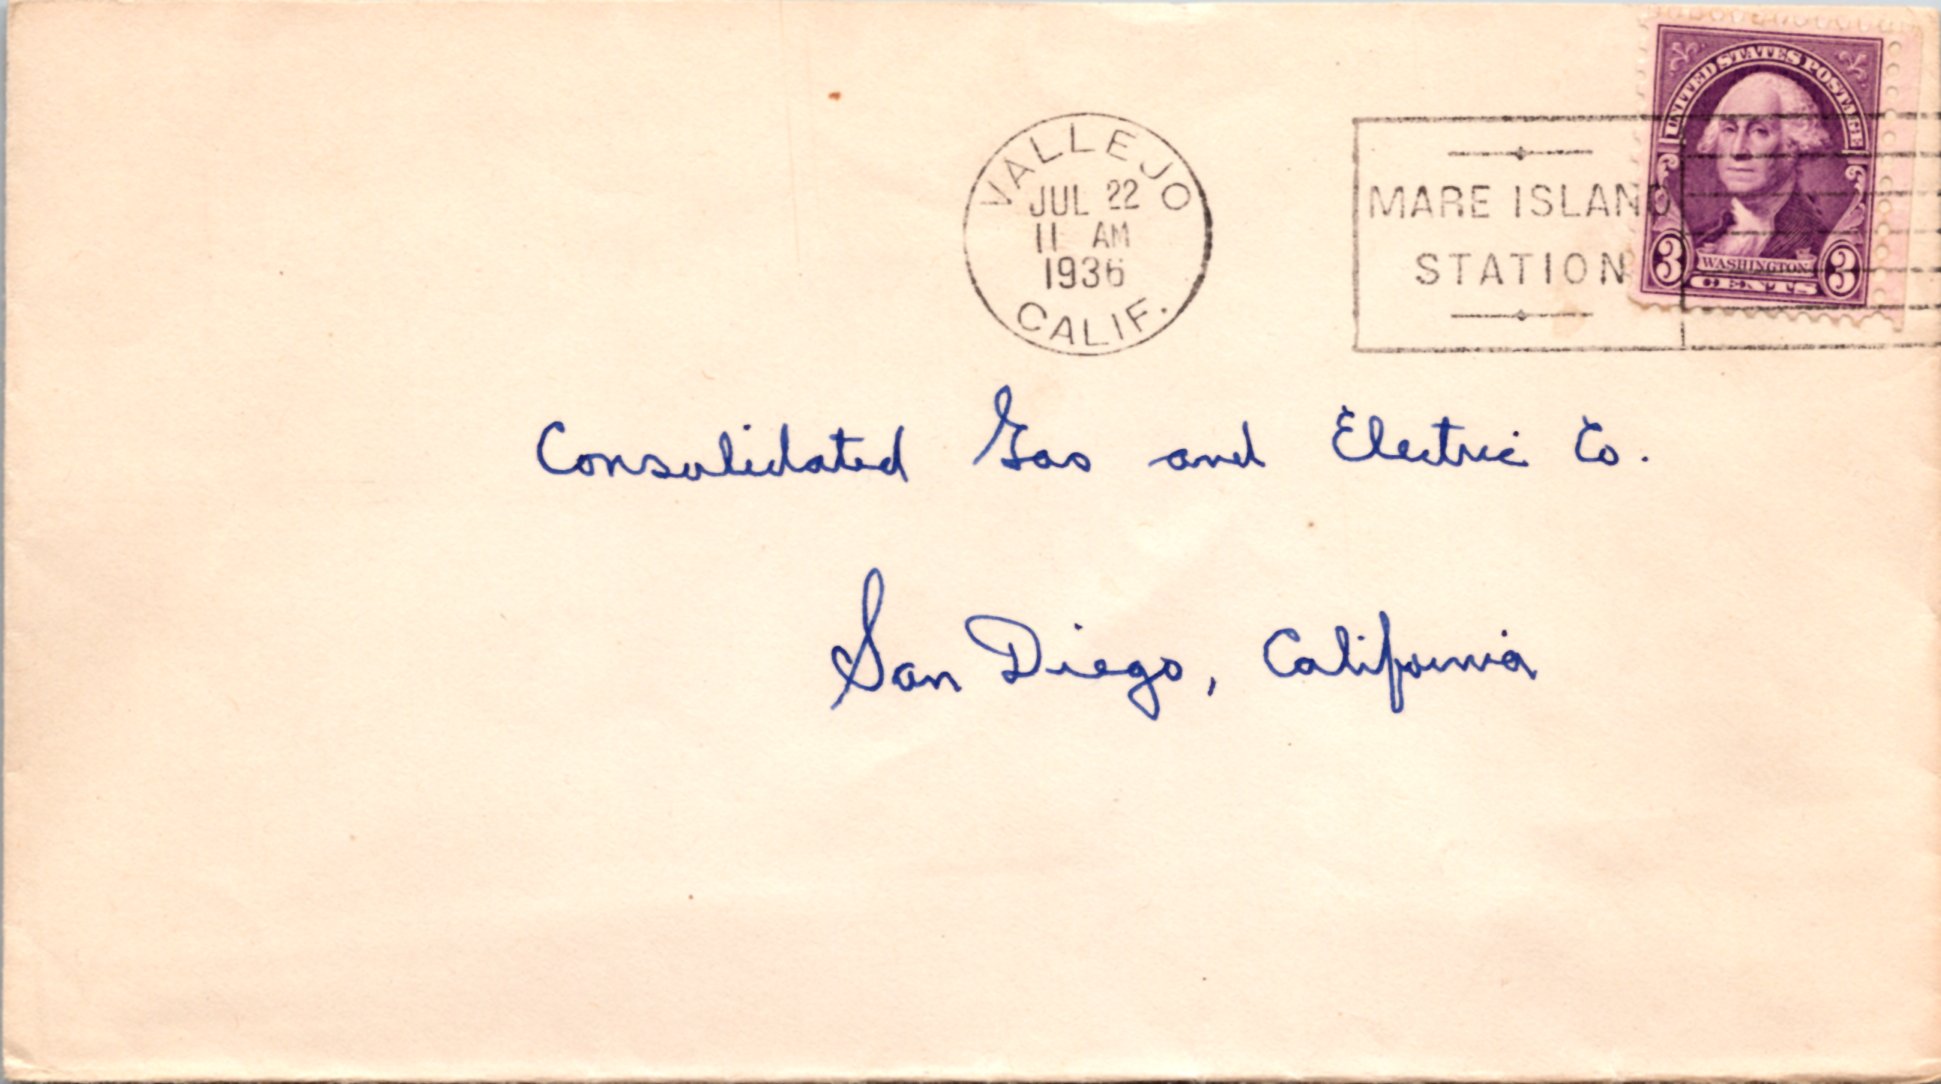 UNITED STATES POSTAGE
3 WASHINGTON 3
CENTS
VALLEJO
JUL 22
11 AM
1936
CALIF.
MARE ISLAND
STATION
Consolidated Gas and Electric Co.
San Diego, California